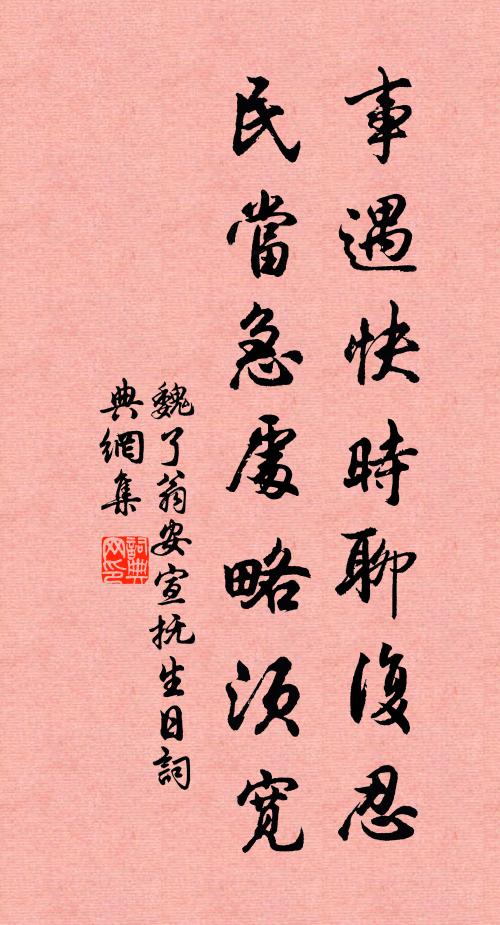 事遇快時聊復忍
民當急處略須寬
魏了翁安宣抚生日詞
典網集
詞典网印